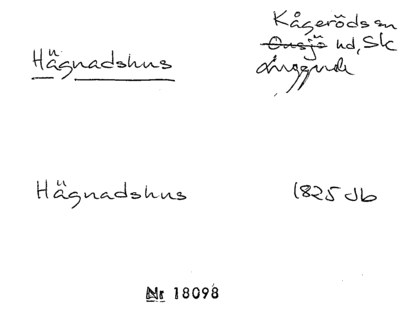 Kågeröds sn
Hägnadshus Onsjö hd, Sk
Luggude
Hägnadshus 1825 Jb
Nr 18098